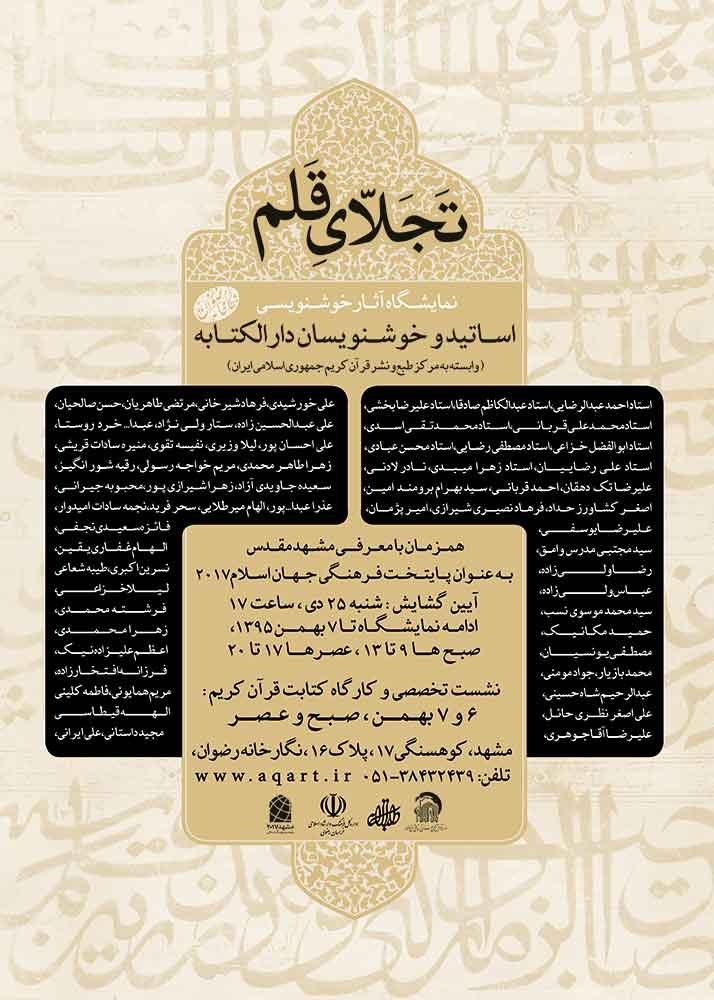 تَجَلّایِ قَلَم
نمایشگاه آثار خوشنویسی
اساتید و خوشنویسان دارالکتابه
(وابسته به مرکز طبع و نشر قرآن کریم جمهوری اسلامی ایران)
استاد احمد عبدالرضایی، استاد عبدالکاظم صادقا، استاد علیرضا بخشی،
استاد محمدعلی قربانی، استاد محمدتقی اسدی،
استاد ابوالفضل خزاعی، استاد مصطفی رضایی، استاد محسن عبادی،
استاد علی رضاییان، استاد زهرا میبدی، نادر لادنی،
علیرضا تک دهقان، احمد قربانی، سید بهرام برومند امین،
اصغر کشاورز حداد، فرهاد نصیری شیرازی، امیر پژمان،
علیرضا یوسفی،
سید مجتبی مدرس وامق،
رضا ولی زاده،
عباس ولی زاده،
سید محمد موسوی نسب،
حمید مکانیک،
مصطفی یونسیان،
محمد بازیار، جواد مومنی،
عبدالرحیم شاه حسینی،
علی اصغر نظری حائل،
علیرضا آقاجوهری،
علی خورشیدی، فرهاد شیرخانی، مرتضی طاهریان، حسن صالحیان،
علی عبدالحسین زاده، ستار ولی نژاد، عبدا... خرد روستا،
علی احسان پور، لیلا وزیری، نفیسه تقوی، منیره سادات قریشی،
زهرا طاهر محمدی، مریم خواجه رسولی، رقیه شورانگیز،
سعیده جاویدی آزاد، زهرا شیرازی پور، محبوبه جیرانی،
عذرا عبدا...پور، الهام میرطلایی، سحر فرید، نجمه سادات امیدوار،
فائزه سعیدی نجفی،
الهام غفاری یقین،
نسرین اکبری، طیبه شعاعی
لیلا خزاعی،
فرشته محمدی،
زهرا محمدی،
اعظم علیزاده نیک،
فرزانه افتخارزاده،
مریم همایونی، فاطمه کلینی
الهه قیطاسی
مجید داستانی، علی ایرانی،
همزمان با معرفی مشهد مقدس
به عنوان پایتخت فرهنگی جهان اسلام ۲۰۱۷
آیین گشایش: شنبه ۲۵ دی، ساعت ۱۷
ادامه نمایشگاه تا ۷ بهمن ۱۳۹۵،
صبح ها ۹ تا ۱۳، عصرها ۱۷ تا ۲۰
نشست تخصصی و کارگاه کتابت قرآن کریم:
۶ و ۷ بهمن، صبح و عصر
مشهد، کوهسنگی ۱۷، پلاک ۱۶، نگارخانه رضوان،
تلفن: ۳۸۴۳۲۴۳۹-۰۵۱ www.aqart.ir
مشهد ۲۰۱۷
اداره کل فرهنگ و ارشاد اسلامی
خراسان رضوی